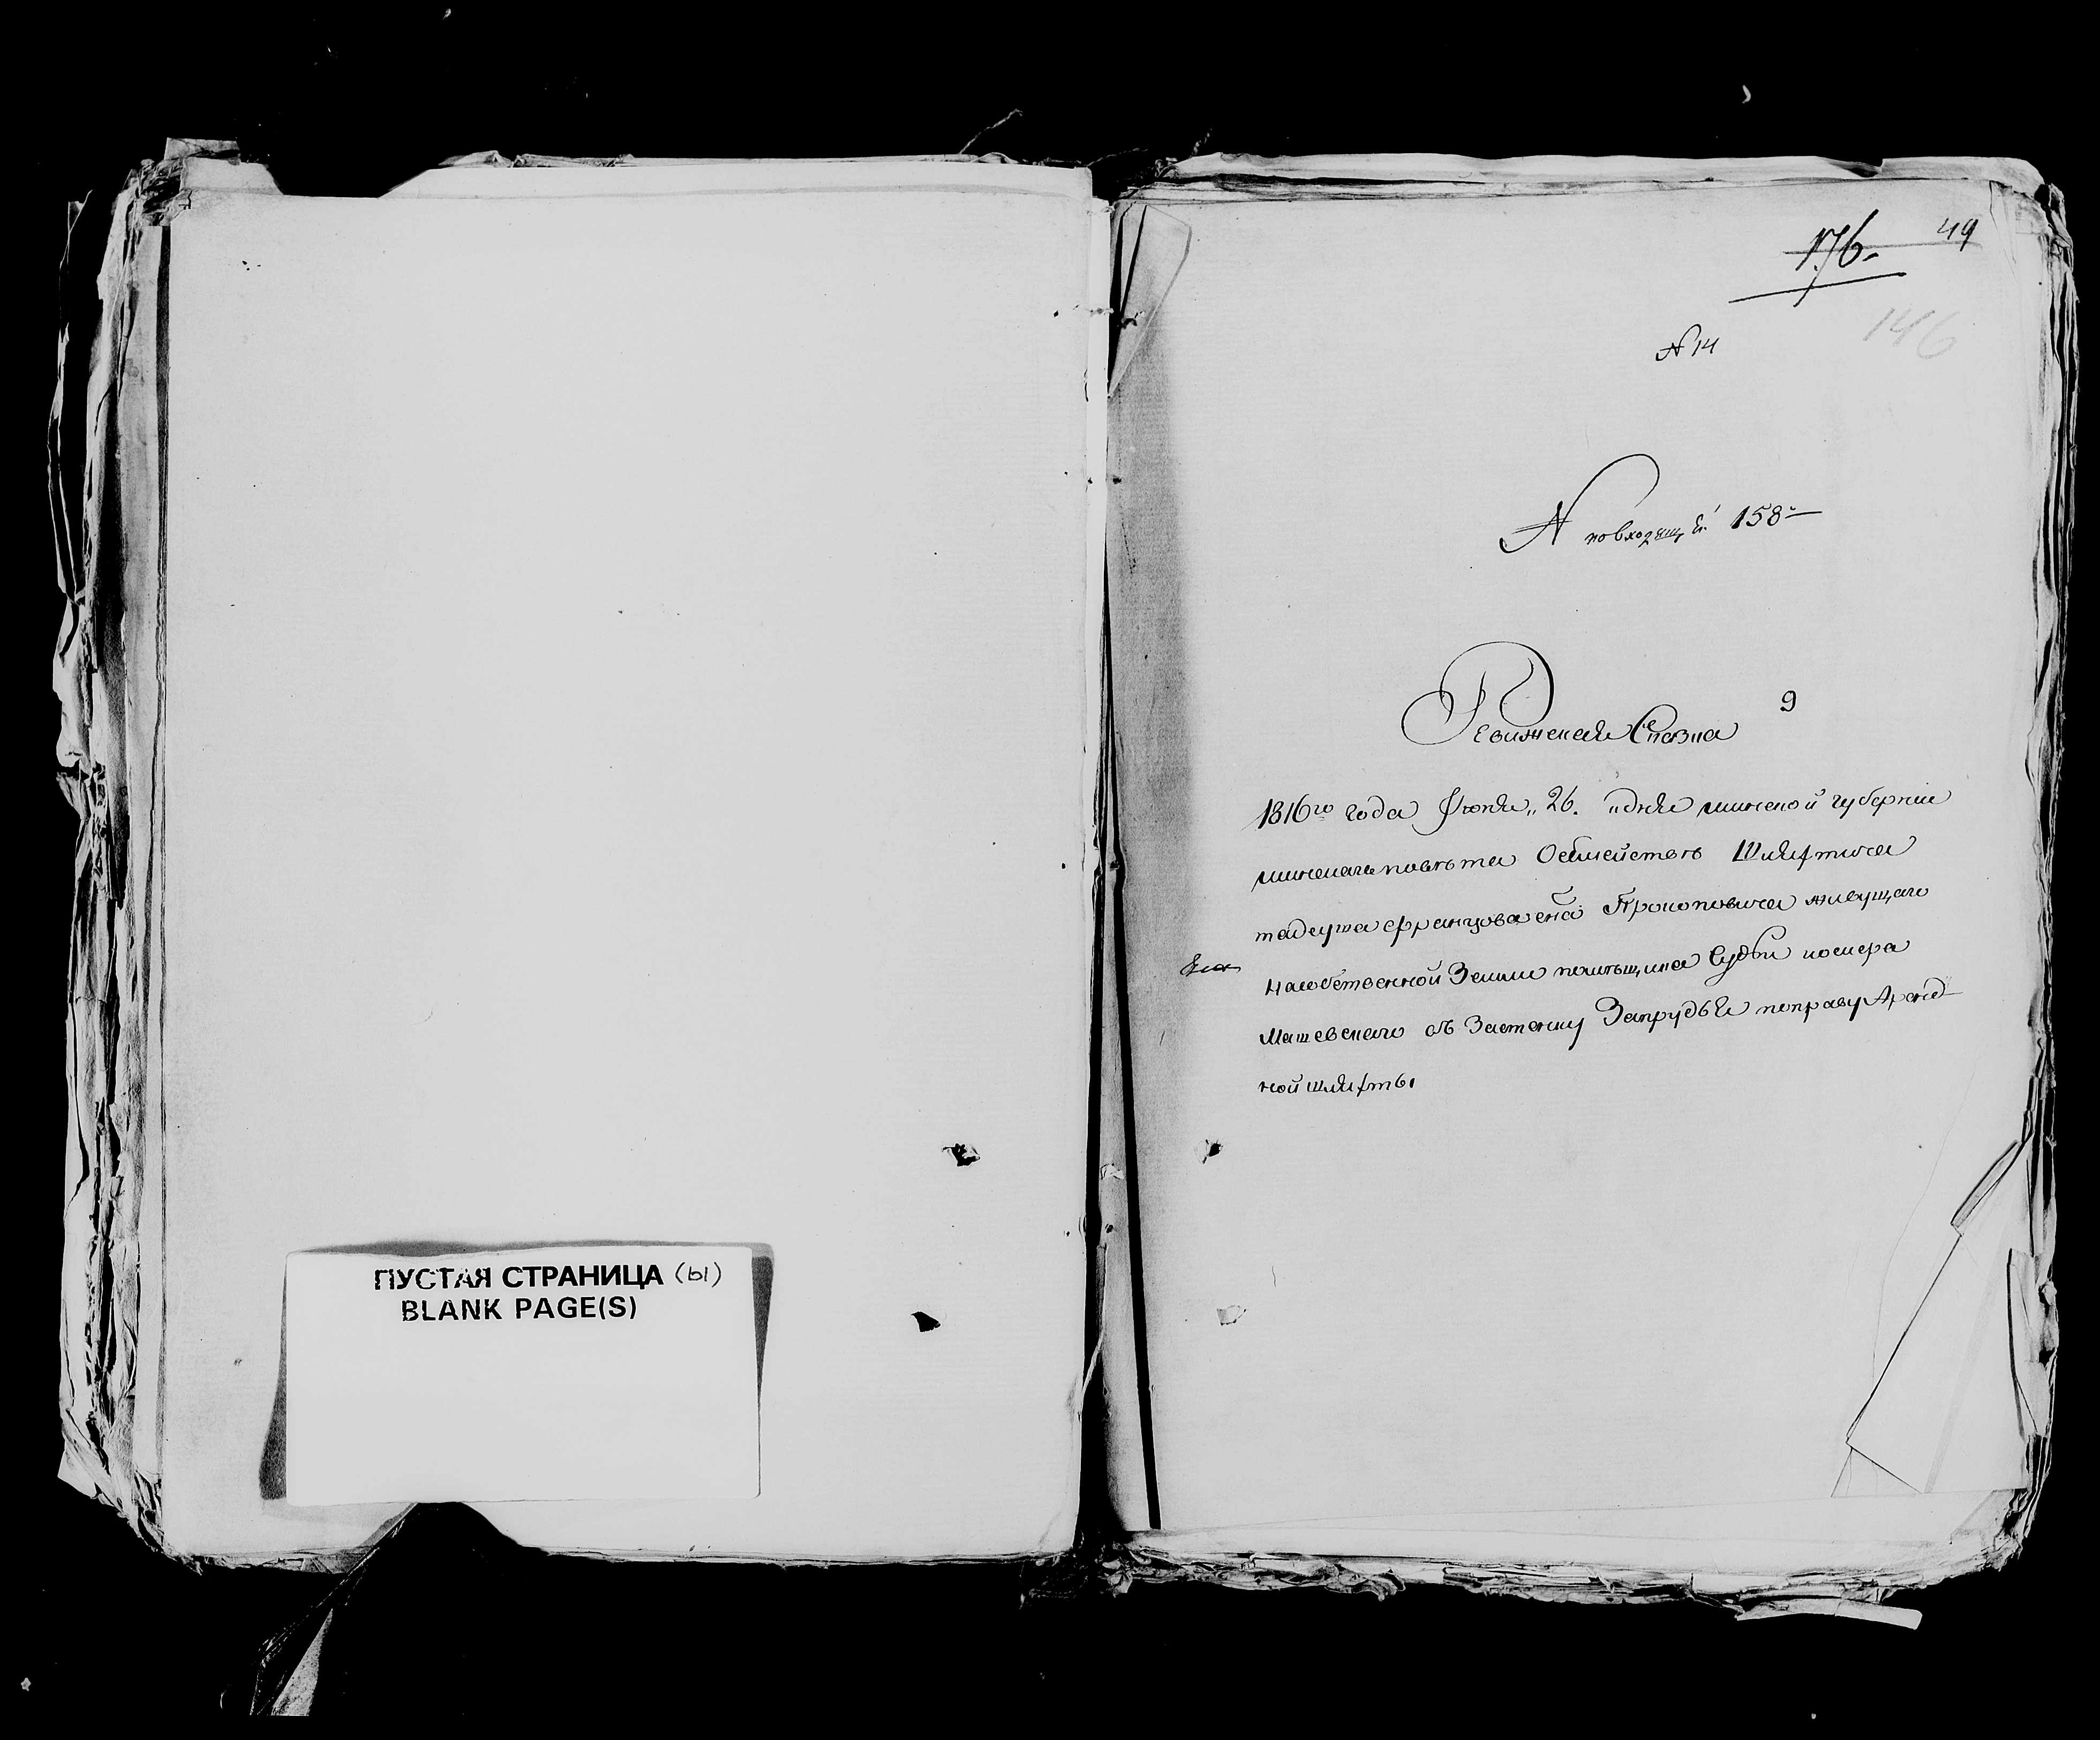 ПУСТАЯ СТРАНИЦА (ы)
BLANK PAGE(S)
176.
49
146
N 14
N повходящей 158
9
Ревижская Сказка
1816го года Июня „26. „дня минской губернии
минскаго повѣта Осѣмействѣ Шляхтича
тадеуша францова сына Прокоповича живущаго
на собственной Земли помѣщика Судьи
Машевского въ Застенку Запрудье поправу Аренд-
ной шляхты